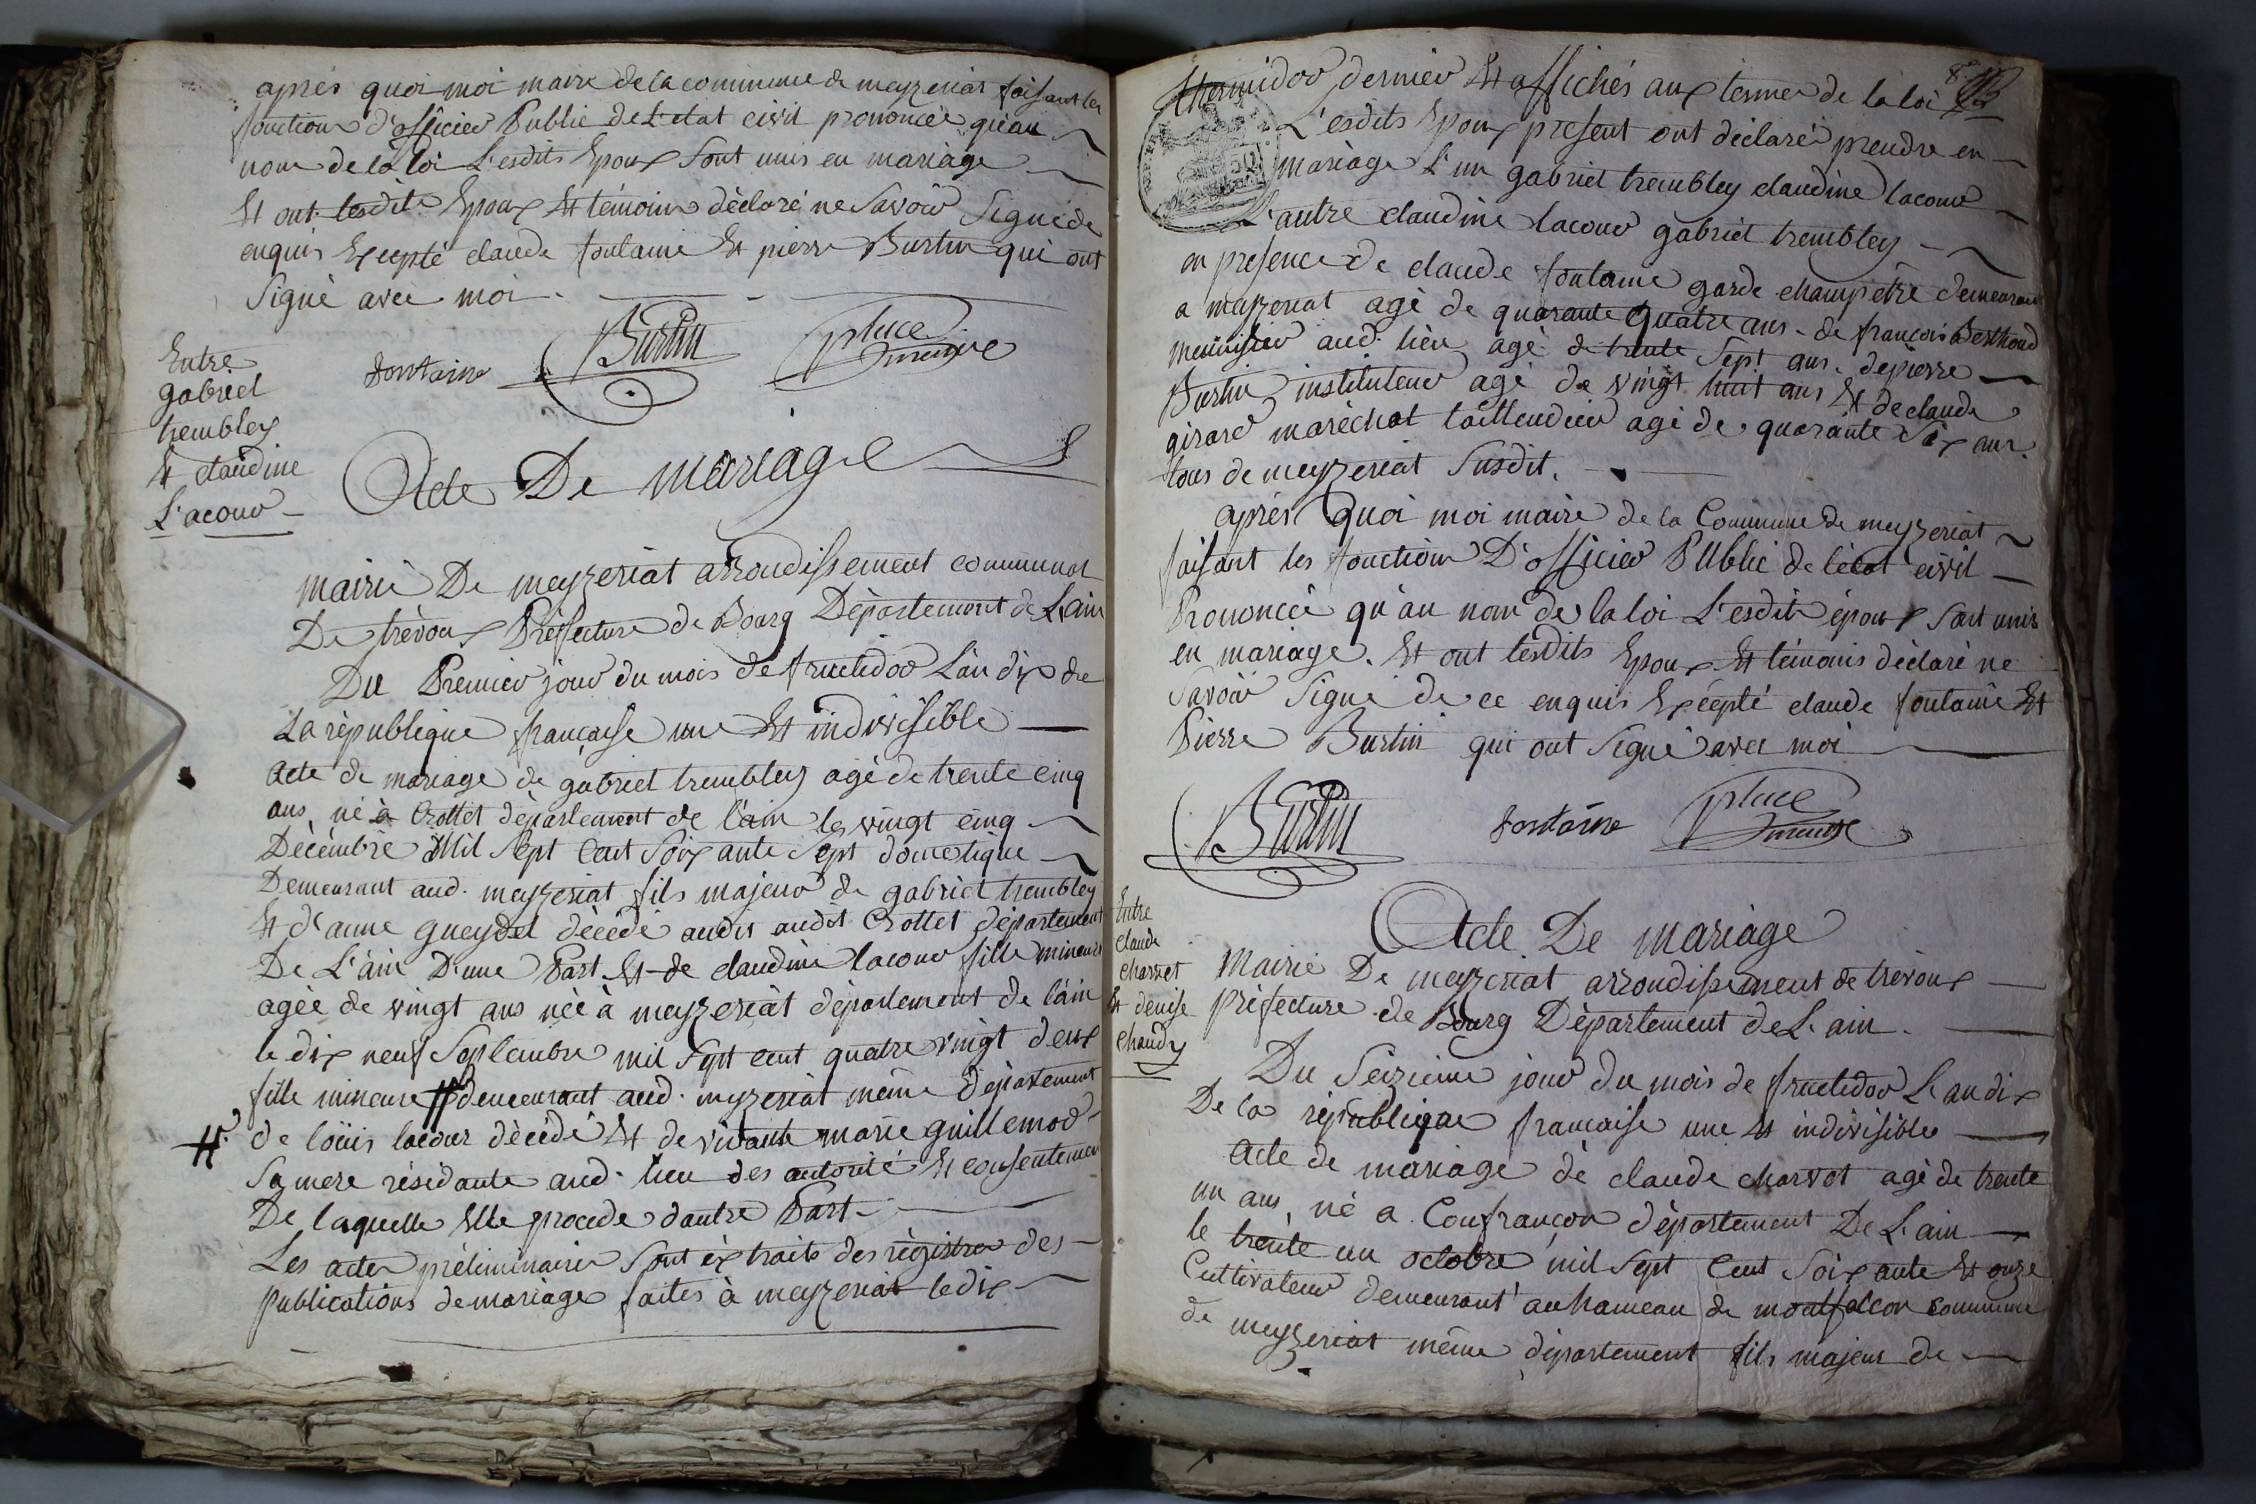 après quoi moi maire de la commune de meyzeriat faisant les
fonctions d'officier Public de L'etat civil prononcée qu'au
nom de la loi L'esdits Epoux sont unis en mariage
Et ont lesdits Epoux Et témoins déclaré ne Savoir Signé de
enquis Excepté claude fontaine Et pierre Burtin qui ont
Signé avec moi
Fontaine Burtin place
maire
Entre
gabriel
trembley
Et claudine
L'acour
Acte De mariage
mairie De meyzeriat arrondissement communal
De trévoux Préfecture de Bourg Département de L'ain
Du Premier jour du mois de fructidor L'an dix de
La république française une Et indivisible
Acte de mariage de gabriel trembley agé de trente cinq
ans, né à Crottet département de l'ain le vingt cinq
Décémbre Mil Sept Cent Soixante Sept domestique
Demeurant aud. meyzeriat fils majeur de gabriel trembley
Et d'anne gueydet décédé audit Crottet département
De L'ain D'une Part Et de claudine lacour fille mineure
agée de vingt ans née à meyzeriat département de l'ain
le dix neuf Septembre mil Sept cent quatre vingt deux
fille mineure # demeurant aud. meyzeriat même Département
# de loüis lacour décédé Et de vivante marie guillemod
Sa mere résidante aud. lieu des autorité Et consentement
De laquelle Elle procede d'autre Part
Les actes préliminaires Sont éxtraits des régistres des
publications de mariage faites à meyzeriat le dix
thermidor dernier Et affichés aux termes de la loi
L'esdits Epoux présent ont déclaré prendre en
mariage L'un gabriel trembley claudine lacour
L'autre claudine lacour gabriel trembley
en présence de claude fontaine garde champêtre demeurant
a meyzeriat agé de quarante quatre ans de françois Berthoud
menuisier aud. lieu agé de trente Sept ans de pierre
Burtin instituteur agé de vingt huit ans Et de claude
girard maréchal taillendier agé de quarante Six ans
tous de meyzeriat Susdit.
après quoi moi maire de la Commune de meyzeriat
faisant les fonctions D'officier PUblic de l'état civil
Prononcée qu'au nom de la loi L'esdits époux Sont unis
en mariage. Et ont lesdits Epoux Et témoins déclaré ne
Savoir Signé de ce enquis Excépté claude fontaine Et
Pierre Burtin qui ont Signé avec moi
Burtin Fontaine place
maire
Entre
claude
charvet
Et denise
chaudy
Acte De mariage
Mairie De meyzeriat arrondissement de trévoux
préfecture de Bourg Département de L'ain.
Du Seizieme jour du mois de fructidor L'an dix
De la république française une Et indivisible
Acte de mariage de claude charvet agé de trente
un ans, né a Confrançon département De L'ain
le trente un octobre mil Sept Cent Soixante Et onze
Cultivateur demeurant au hameau de montfalcon commune
de meyzeriat même département fils majeur de